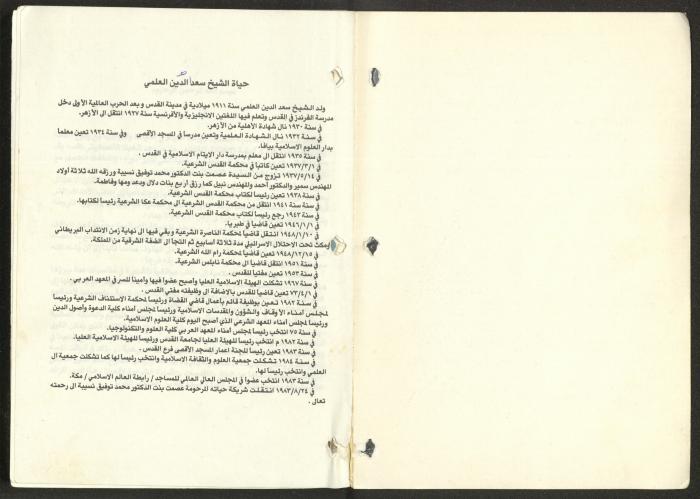 حياة الشيخ سعد الدين العلمي
ولد الشيخ سعد الدين العلمي سنة ١٩١١ ميلادية في مدينة القدس و بعد الحرب العالمية الأولى دخل
مدرسة الفرندز في القدس وتعلم فيها اللغتين الانجليزية والأفرنسية سنة ١٩٢٧ انتقل الى الأزهر.
في سنة ١٩٣٠ نال شهادة الأهلية من الأزهر.
في سنة ١٩٣٢ نال الشهادة العلمية وتعين مدرساً في المسجد الأقصى وفي سنة ١٩٣٤ تعين معلما
بدار العلوم الاسلامية بيافا.
في سنة ١٩٣٥ انتقل الى معلم بمدرسة دار الايتام الاسلامية في القدس .
في ١٩٣٧/٣/١ تعين كاتباً في محكمة القدس الشرعية.
في ١٩٣٧/٥/١٤ تزوج من السيدة عصمت بنت الدكتور محمد توفيق نسيبة ورزقه الله ثلاثة أولاد
المهندس سمير والدكتور أحمد والمهندس نبيل كما رزق أربع بنات دلال ودعد ومها وفاطمة.
في سنة ١٩٣٨ تعين رئيساً لكتاب محكمة القدس الشرعية.
في سنة سنة ١٩٤١ انتقل من محكمة القدس الشرعية الى محكمة عكا الشرعية رئيساً لكتابها.
في سنة ١٩٤٣ رجع رئيساً لكتاب محكمة القدس الشرعية.
في ١٩٤٦/١/١ تعين قاضياً في طبريا.
في ١٩٤٨/١/١٠ انتقل قاضياً لمحكمة الناصرة الشرعية و بقي فيها الى نهاية زمن الانتداب البريطاني
ومكث تحت الاحتلال الاسرائيلي مدة ثلاثة أسابيع ثم التجأ الى الضفة الشرقية من المملكة.
في ١٩٤٨/١٢/١٥ تعين قاضياً لمحكمة رام الله الشرعية.
في سنة ١٩٥١ انتقل قاضياً الى محكمة نابلس الشرعية.
في سنة ١٩٥٣ تعين مفتياً للقدس .
في سنة ١٩٦٧ تشكلت الهيئة الاسلامية العليا وأصبح عضواً فيها وأميناً للسر في المعهد العربي .
في ٧٣/٤/١ تعين قاضياً للقدس بالاضافة الى وظيفته مفتي القدس .
في سنة ١٩٨٢ تعين بوظيفة قائم بأعمال قاضي القضاة ورئيساً لمحكمة الاستئناف الشرعية ورئيساً
لمجلس أمناء الأوقاف والشؤون والمقدسات الاسلامية ورئيساً لمجلس أمناء كلية الدعوة وأصول الدين
ورئيساً لمجلس أمناء المعهد الشرعي الذي أصبح اليوم كلية العلوم الاسلامية.
في سنة ٧٥ انتخب رئيساً لمجلس أمناء المعهد العربي كلية العلوم والتكنولوجيا.
في سنة ١٩٨٢ م انتخب رئيساً للهيئة العليا لجامعة القدس ورئيساً للهيئة الاسلامية العليا.
في سنة ١٩٨٣ تعين رئيساً للجنة اعمار المسجد الأقصى فرع القدس .
في سنة ١٩٨٤ تشكلت جمعية العلوم والثقافة الاسلامية وانتخب رئيساً لها كما تشكلت جمعية ال
العلمي وانتخب رئيساً لها.
في سنة ١٩٨٣ انتخب عضواً في المجلس العالي العالمي للمساجد / رابطة العالم الاسلامي / مكة.
في ١٩٨٣/٨/٢٤ انتقلت شريكة حياته المرحومة عصمت بنت الدكتور محمد توفيق نسيبة الى رحمته
تعالى .